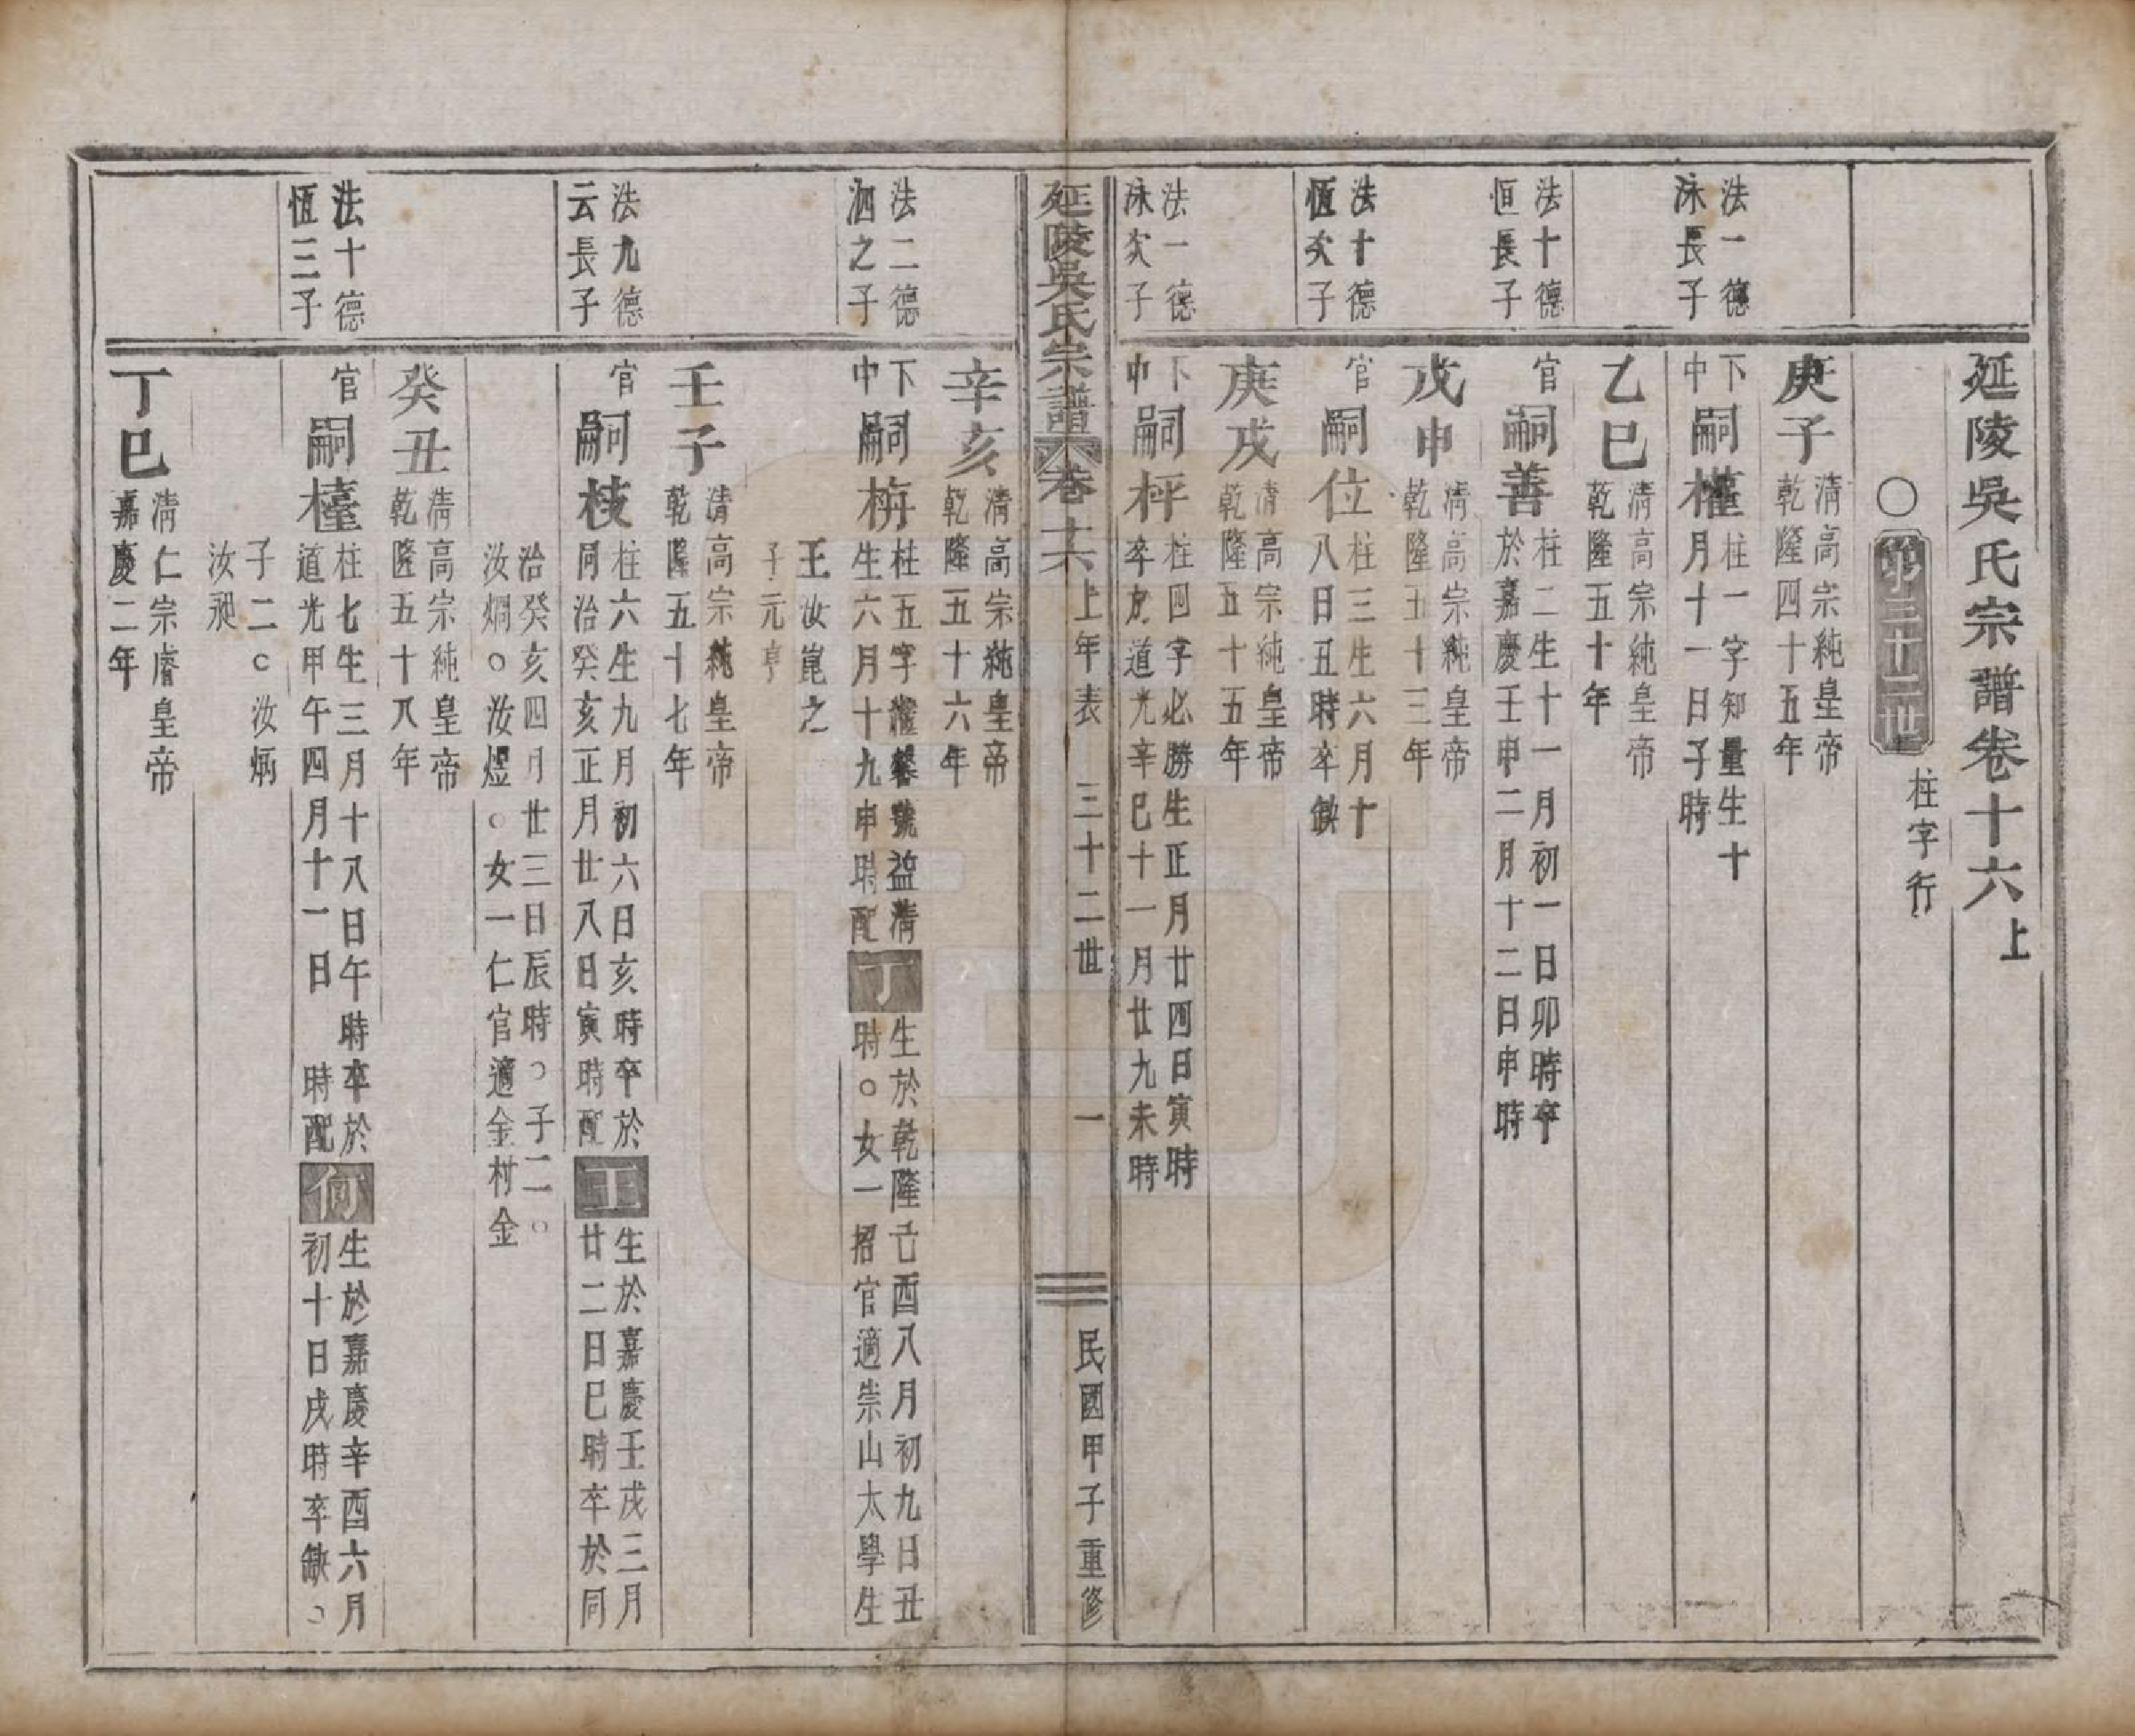 延陵吳氏宗譜卷十六上
○第三十二世 柱字行
庚子 清高宗純皇帝
乾隆四十五年
法一德
泳長子
下
中
嗣權 柱一字知量生十
月十一日子時
乙巳 清高宗純皇帝
乾隆五十年
法十德
恒長子
官
嗣善 柱二生十一月初一日卯時卒
於嘉慶壬申二月十二日申時
戊申 清高宗純皇帝
乾隆五十三年
法十德
恆次子
官
嗣位 柱三生六月十
八日丑時卒缺
庚戌 清高宗純皇帝
乾隆五十五年
法一德
泳次子
下
中
嗣枰 柱四字必勝生正月廿四日寅時
卒於道光辛巳十一月廿九未時
延陵吳氏宗譜 卷十六上年表 三十二世 一 民國甲子重修
辛亥 清高宗純皇帝
乾隆五十六年
法二德
泗之子
下
中
嗣栴 柱五字 馨號益清
生六月十九申時配
丁 生於乾隆己酉八月初九日丑
時○女一招官適崇山太學生
王汝崑之
子元亨
壬子 清高宗純皇帝
乾隆五十七年
法九德
云長子
官
嗣枝 柱六生九月初六日亥時卒於
同治癸亥正月廿八日寅時配
王 生於嘉慶壬戌三月
廿二日巳時卒於同
治癸亥四月廿三日辰時○子二○
汝烱○汝煜○女一仁官適金村金
癸丑 清高宗純皇帝
乾隆五十八年
法十德
恆三子
官
嗣檯 柱七生三月十八日午時卒於
道光甲午四月十一日 時配
何 生於嘉慶辛酉六月
初十日戌時卒缺○
子二○汝炳
汝昶
丁巳 清仁宗睿皇帝
嘉慶二年